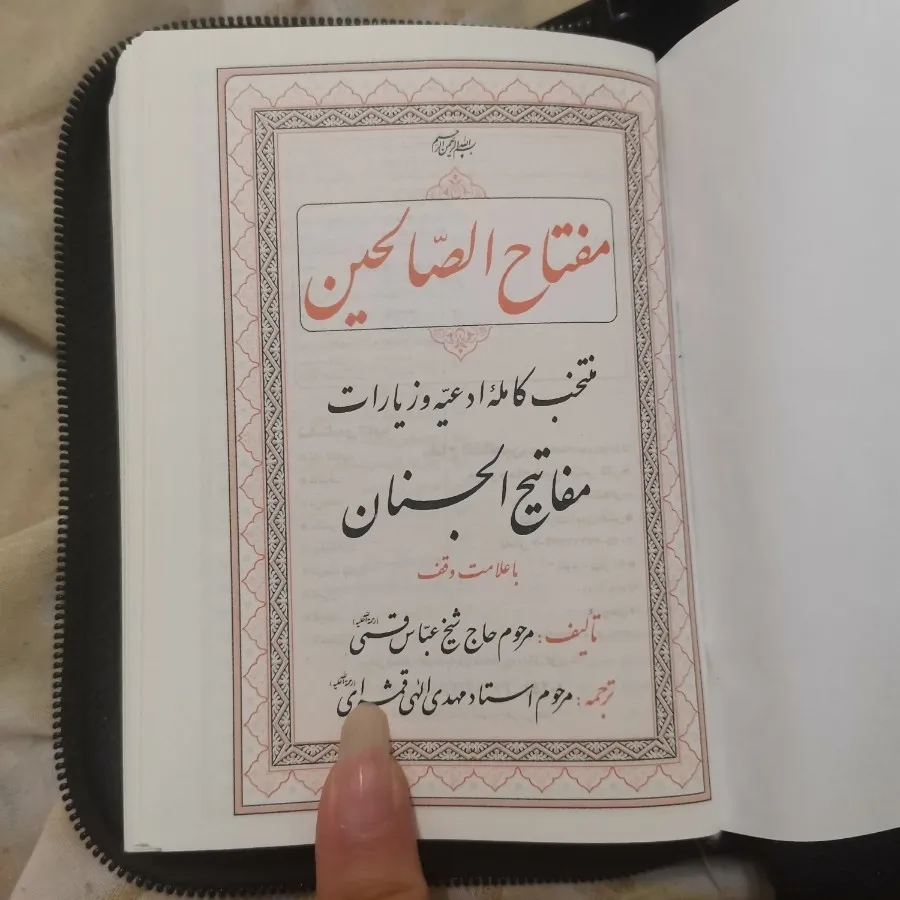 بسم الله الرحمن الرحیم
مفتاح الصّالحین
منتخب کاملهٔ ادعیّه و زیارات
مفاتیح الجنان
با علامت وقف
تألیف: مرحوم حاج شیخ عبّاس قمی (رحمة الله علیه)
ترجمه: مرحوم استاد مهدی الهی قمشه‌ای (رحمة الله علیه)